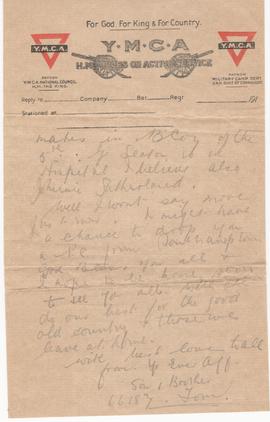 For God. For King & For Country.
Y.M.C.A
Y·M·C·A
Y.M.C.A
H.M. FORCES ON ACTIVE SERVICE
PATRON
Y.M.C.A. NATIONAL COUNCIL.
H.M. THE KING.
PATRON
MILITARY CAMP DEPT.
Reply to Company Bat. Regt. 191
Stationed at
mates in B Coy of the
Season is in
Hospital I believe also
Sutherland.
Well I wont say more
have
a chance to drop you
a P.C. from Southampton
God bless you all &
I hope to be home soon
to see you all. will
do our best for the good
old country & those we
leave at home.
with best love to all
from Yr Ever Aff
Son & Brother
Tom.